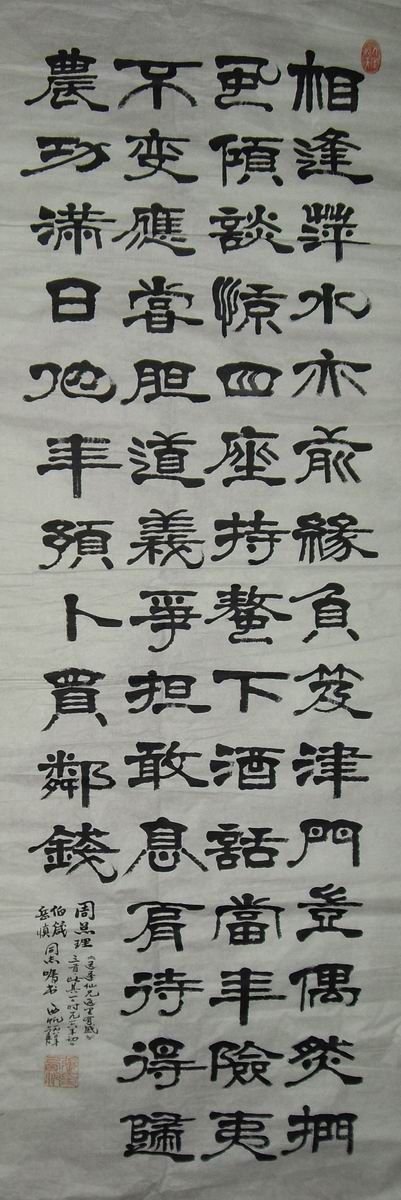 相逢萍水亦前緣負笈津門豈偶然捫
虱傾談惊四座持螯下酒話當年險夷
不变應嘗胆道義爭担敢息肩待得歸
農功滿日他年預卜買鄰錢
周总理《送蓬仙兄返里有感》
三首此其一时
同志嘱书